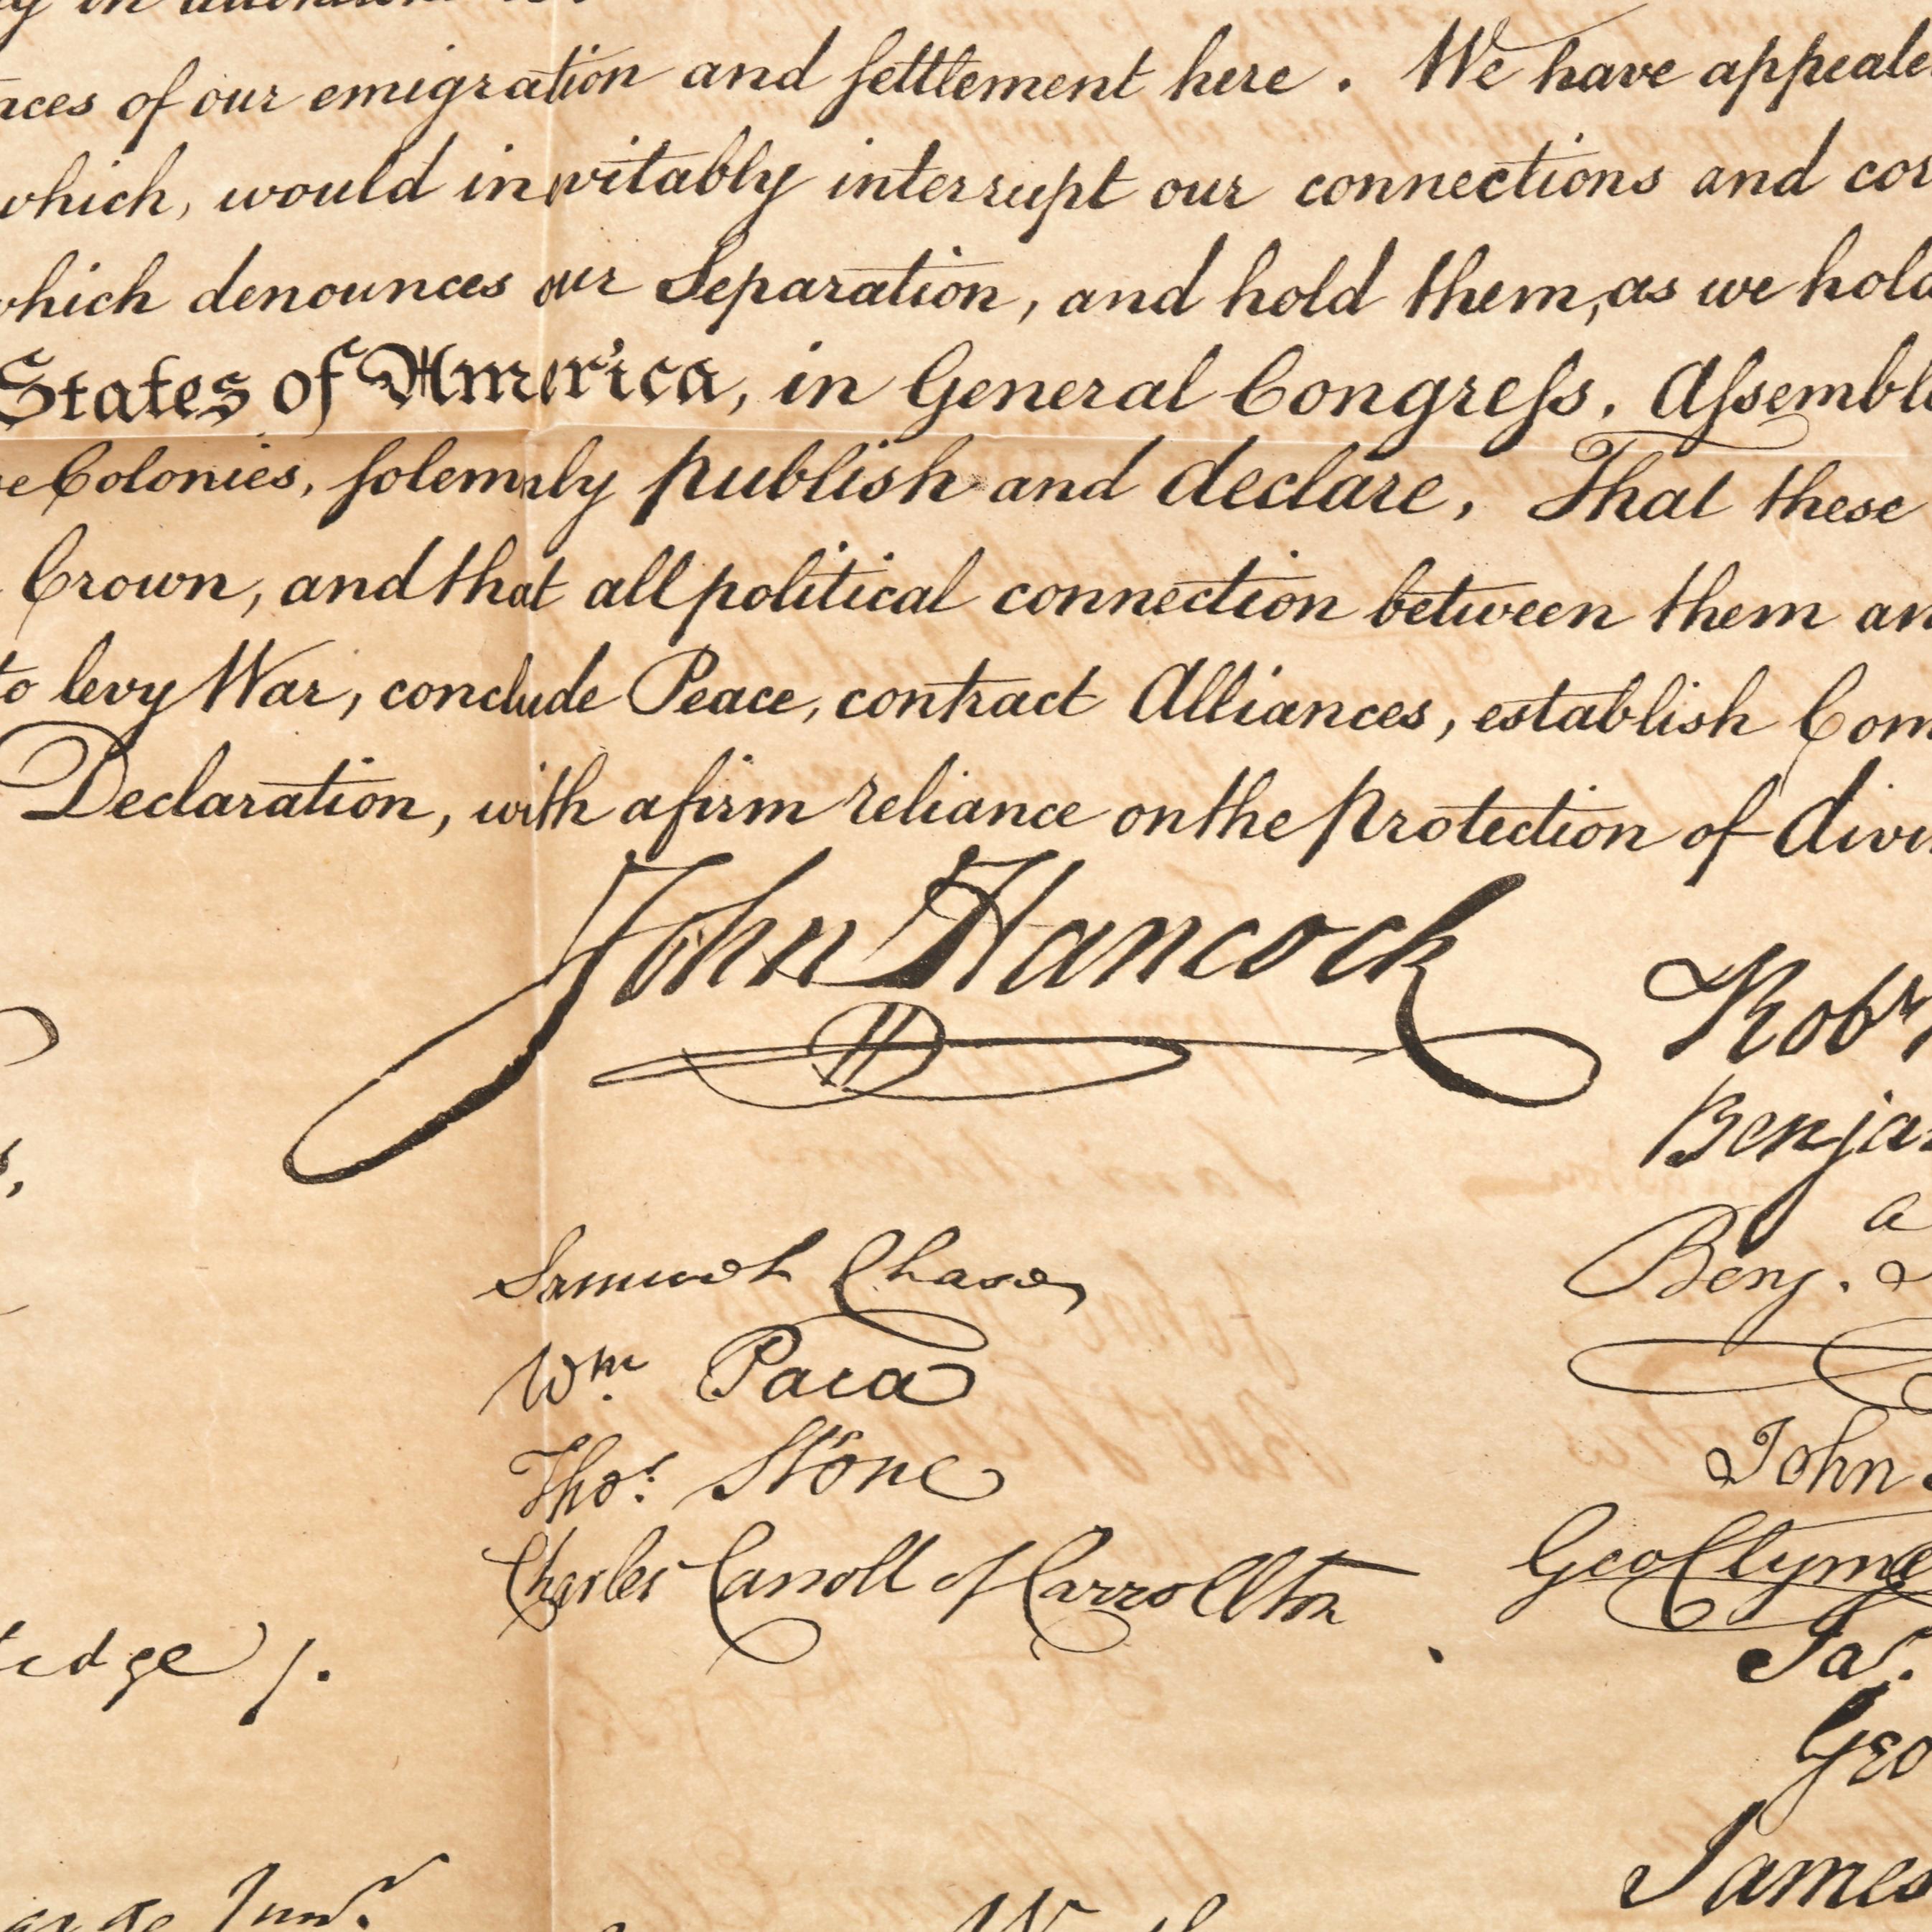 of our emigration and settlement here. We have appeale
which, would inevitably interrupt our connections and cor
which denounces our Separation, and hold them, as we hold
States of America, in General Congreſs, Aſsembl
Colonies, solemnly publish and declare, That these
Crown, and that all political connection between them an
to levy War, conclude Peace, contract Alliances, establish Com
Declaration, with a firm reliance on the protection of divi
John Hancock
Robt
Benja
Benj.
Samuel Chase
Wm. Paca
Thos. Stone
Charles Carroll of Carrollton
John
Geo Clyme
Jas.
Geo
James
Junr.